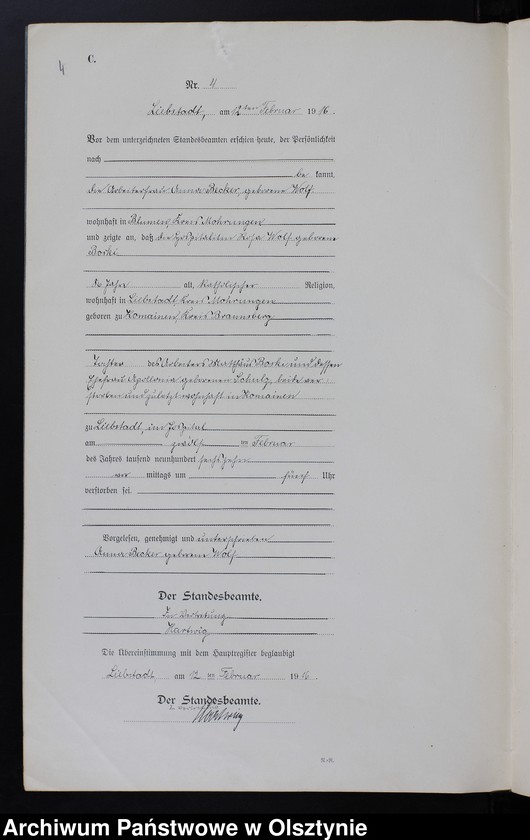 4
C.
Nr. 4
Liebstadt, am 12ten Februar 1916.
Vor dem unterzeichneten Standesbeamten erschien heute, der Persönlichkeit
nach
be kannt,
die Arbeiterfrau Anna Becker, geborene Wolf
wohnhaft in Blumen, Kreis Mohrungen
und zeigte an, daß die Hospitalitin Rosa Wolf geborene
Borki
Jahre alt, katholischer Religion,
wohnhaft in Liebstadt, Kreis Mohrungen
geboren zu Komainen, Kreis Braunsberg
Tochter des Arbeiters Matthäus Borki und dessen
Ehefrau Apollonia geborenen Schulz, beide ver-
storben und zuletzt wohnhaft in Komainen
zu Liebstadt, im Hospital
am zwölf ten Februar
des Jahres tausend neunhundert sechszehn
vor mittags um fünf Uhr
verstorben sei.
Vorgelesen, genehmigt und unterschrieben
Anna Becker geborene Wolf
Der Standesbeamte.
In Vertretung
Hartwig
Die Übereinstimmung mit dem Hauptregister beglaubigt
Liebstadt, am 12 ten Februar 1916.
Der Standesbeamte.
Hartwig
Archiwum Państwowe w Olsztynie